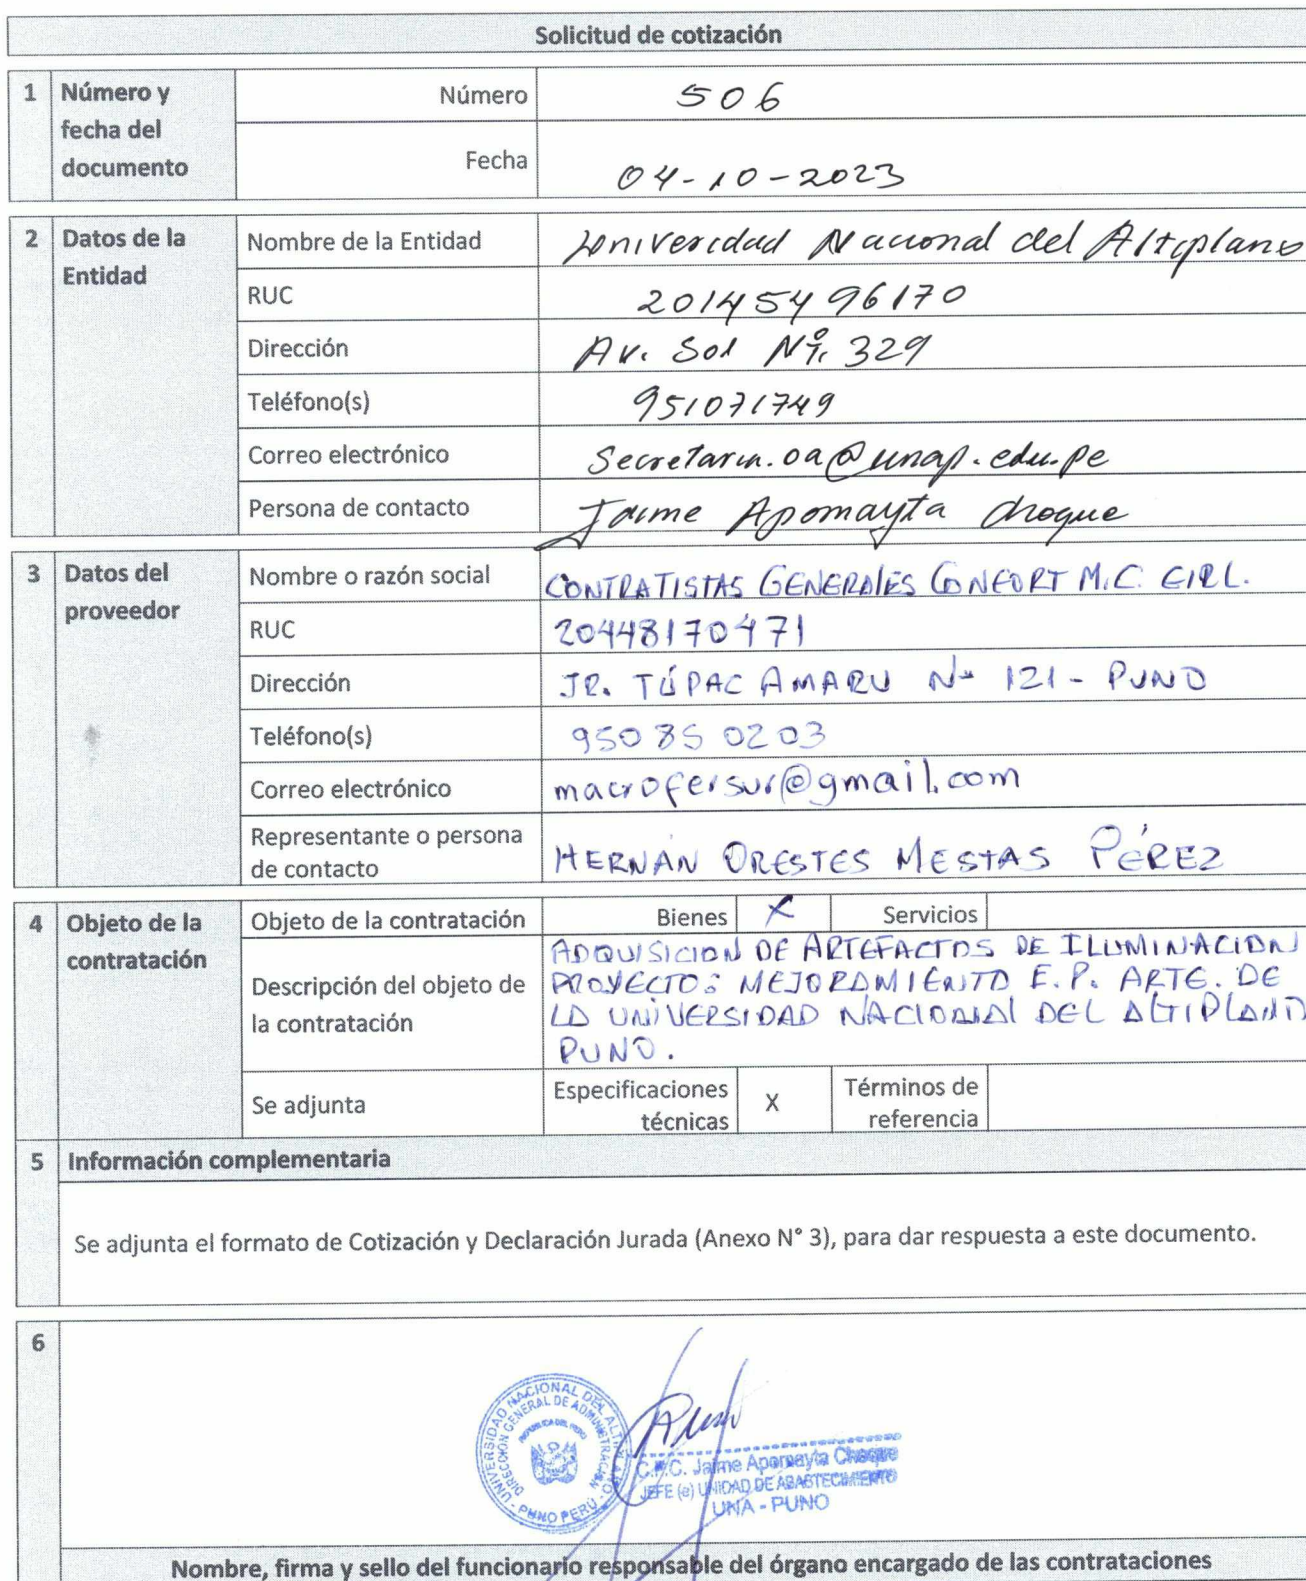 Solicitud de cotización
1 Número y fecha del documento
Número 506
Fecha 04-10-2023
2 Datos de la Entidad
Nombre de la Entidad Univercdad Nacional del Altiplano
RUC 20145496170
Dirección Av. Sol Nº. 329
Teléfono(s) 951071749
Correo electrónico Secretaria.oa@unap.edu.pe
Persona de contacto Jaime Apomayta Choque
3 Datos del proveedor
Nombre o razón social CONTRATISTAS GENERALES CONFORT M.C. EIRL.
RUC 20448170471
Dirección JR. TÚPAC AMARU Nº 121 - PUNO
Teléfono(s) 950850203
Correo electrónico macrofersur@gmail.com
Representante o persona
de contacto HERNÁN ORESTES MESTAS PÉREZ
4 Objeto de la contratación
Objeto de la contratación Bienes X Servicios
Descripción del objeto de
la contratación
ADQUISICION DE ARTEFACTOS DE ILUMINACION
PROYECTO: MEJORAMIENTO E.P. ARTE. DE
LA UNIVERSIDAD NACIONAL DEL ALTIPLANO
PUNO.
Se adjunta Especificaciones técnicas X Términos de referencia
5 Información complementaria
Se adjunta el formato de Cotización y Declaración Jurada (Anexo N° 3), para dar respuesta a este documento.
6
UNIVERSIDAD NACIONAL DEL ALTIPLANO - PUNO PERÚ
DIRECCIÓN GENERAL DE ADMINISTRACIÓN
REPUBLICA DEL PERU
C.P.C. Jaime Apomayta Choque
JEFE (e) UNIDAD DE ABASTECIMIENTO
UNA - PUNO
Nombre, firma y sello del funcionario responsable del órgano encargado de las contrataciones